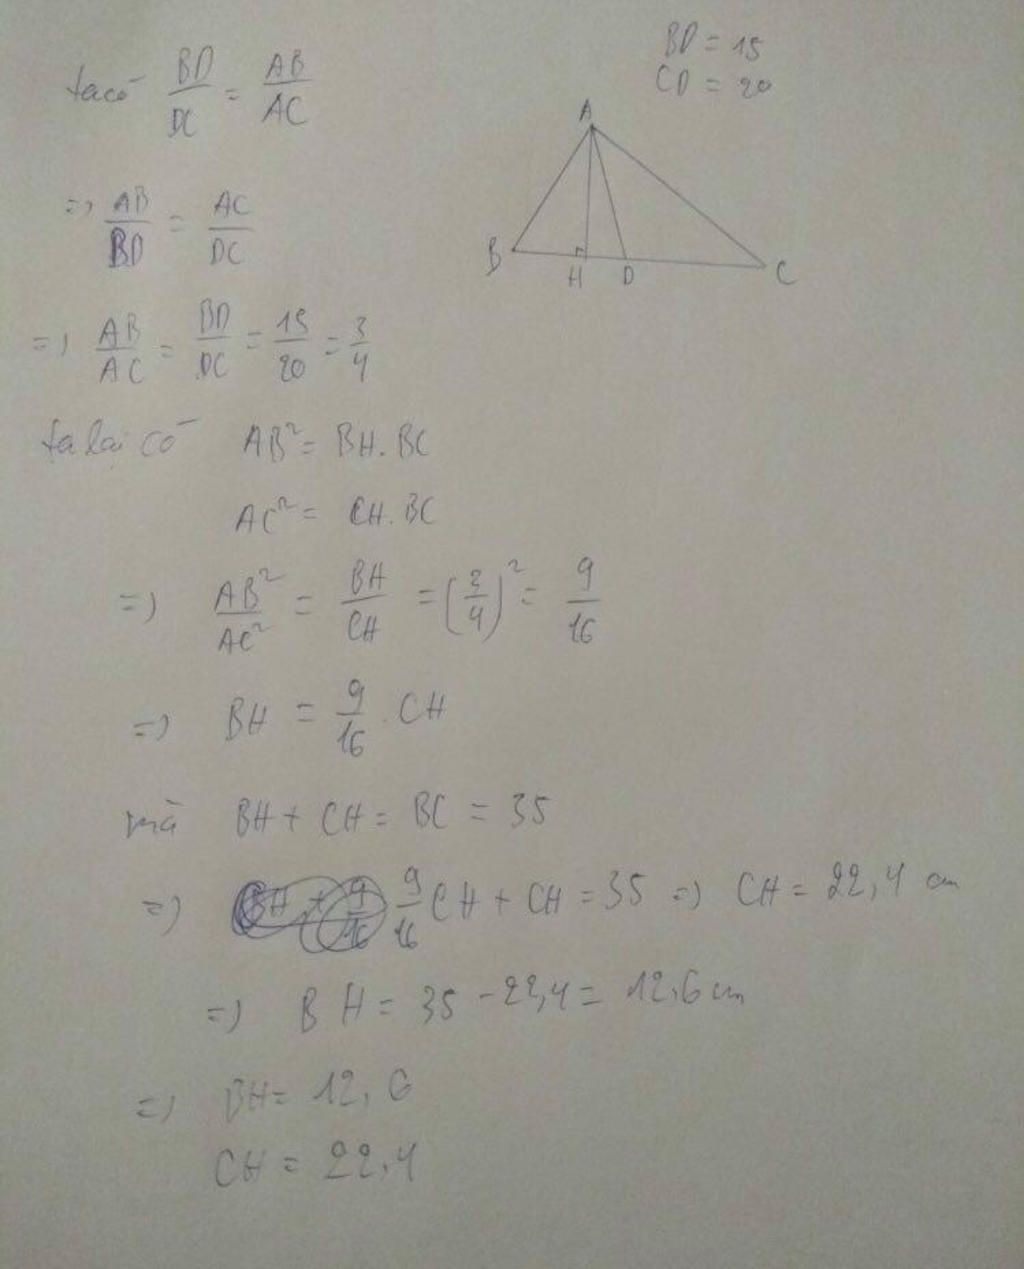 BD = 15
CD = 20
ta có BD/DC = AB/AC
A
B H D C
=> AB/BD = AC/DC
=> AB/AC = BD/DC = 15/20 = 3/4
ta lại có AB² = BH. BC
AC² = CH. BC
=> AB²/AC² = BH/CH = (3/4)² = 9/16
=> BH = 9/16 . CH
mà BH + CH = BC = 35
=> 9/16 CH + CH = 35 => CH = 22,4 cm
=> BH = 35 - 22,4 = 12,6 cm
=> BH = 12,6
CH = 22,4